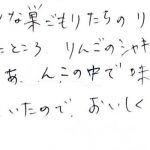 な巣ごもりたちのり
たところ りんごのシャキ
あんこの中で味
いたので、おいしく